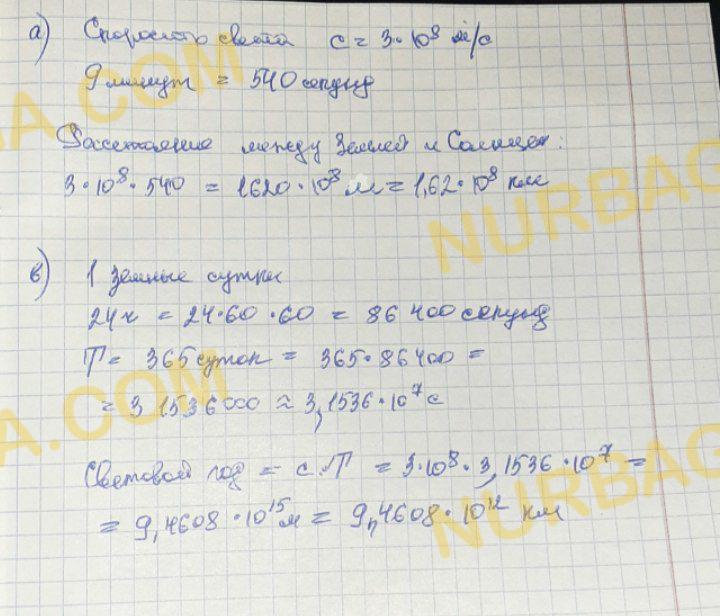 а) Скорость света c = 3·10⁸ м/с
9 минут = 540 секунд
Расстояние между Землей и Солнцем:
3·10⁸·540 = 1620·10⁸ м = 1,62·10⁸ км
в) 1 земные сутки
24ч = 24·60·60 = 86 400 секунд
T = 365 суток = 365·86400 =
= 31536000 ≈ 3,1536·10⁷ с
Световой год = c·T = 3·10⁸·3,1536·10⁷ =
= 9,4608·10¹⁵ м = 9,4608·10¹² км
A.COM
NURBAG
A.COM
NURBAG